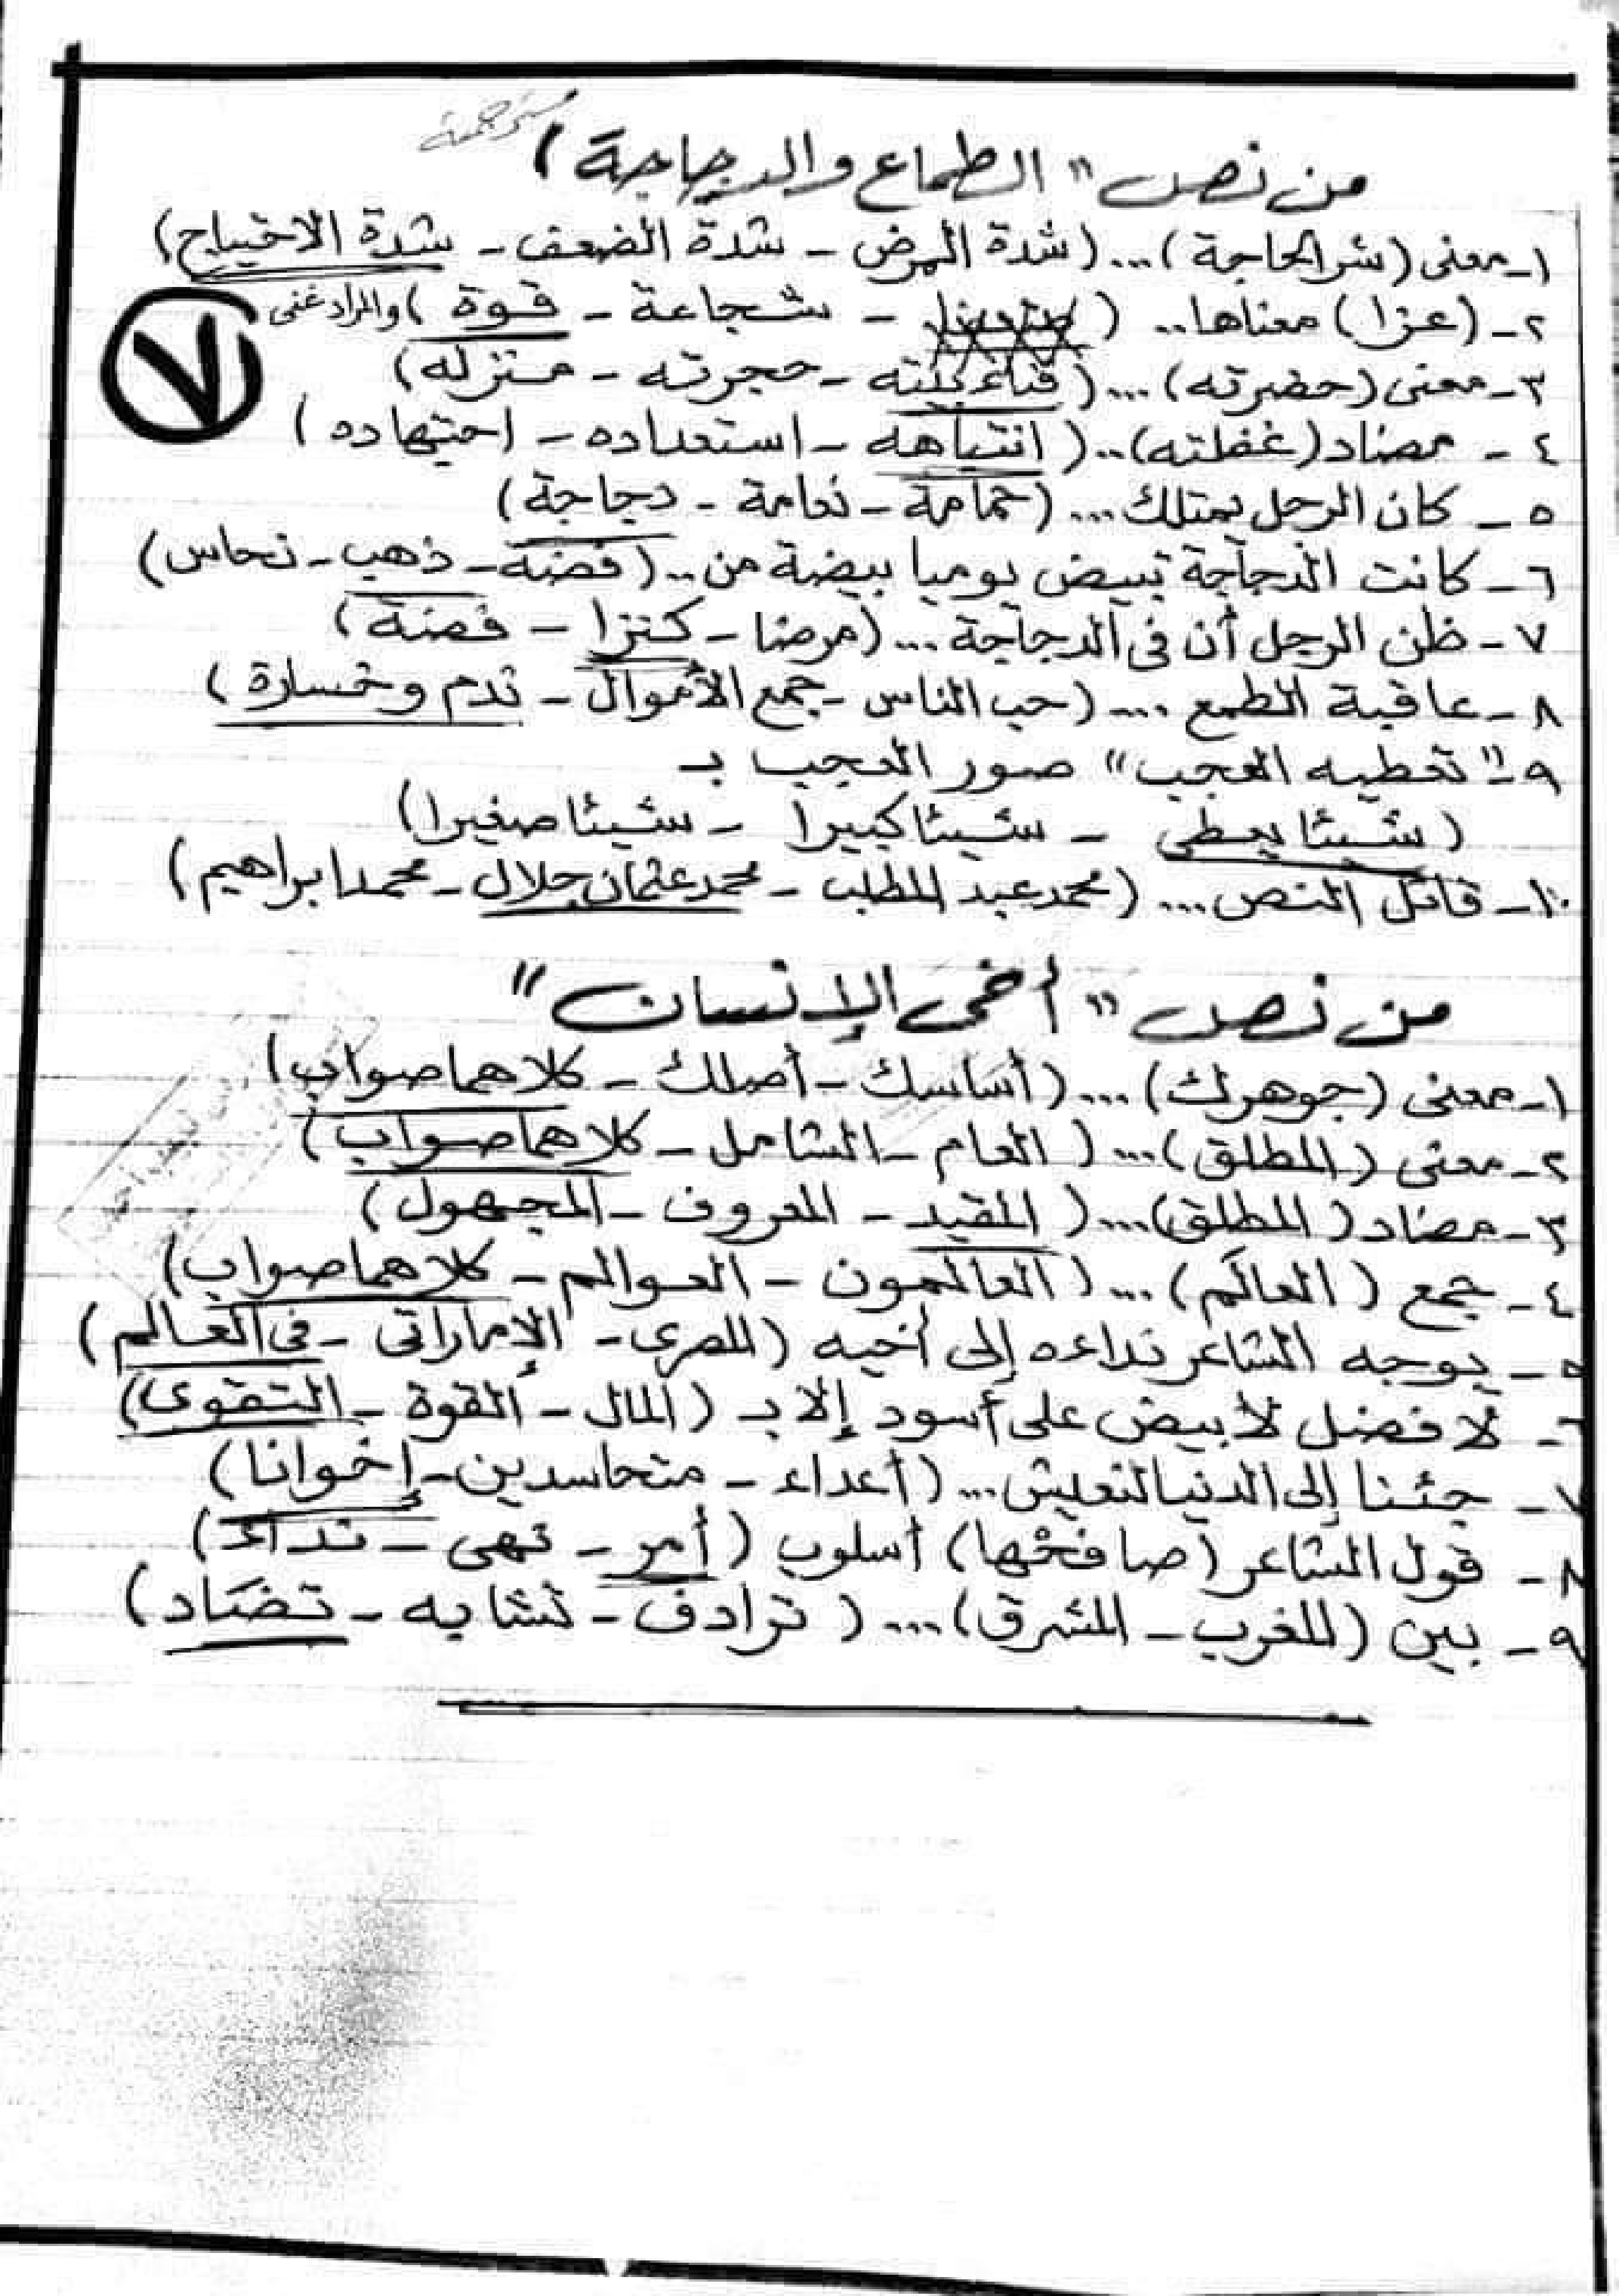 مترجمة
من نص " الطماع والدجاجة )
١- معنى (شر الحاجة) ... (شدة المرض - شدة الضعف - شدة الاحتياج)
٢- (عزا) معناها.. ( - شجاعة - قوة ) والمراد غنى
٧
٣- معنى (حضرته) ... (فناء بيته - حجرته - منزله)
٤- مضاد (غفلته).. (انتباهه - استعداده - اجتهاده)
٥- كان الرجل يمتلك ... (حمامة - نعامة - دجاجة)
٦- كانت الدجاجة تبيض يوميا بيضة من .. (فضة - ذهب - نحاس)
٧- ظن الرجل أن فى الدجاجة ... (مرضا - كنزا - فضة)
٨- عاقبة الطمع .... (حب الناس - جمع الأموال - ندم وخسارة)
٩- " تعطيه العجب " صور العجب بـ
(شيئا يعطى - شيئا كبيرا - شيئا صغيرا)
١٠- قائل النص .... (محمد عبد المطلب - محمد عثمان جلال - محمد ابراهيم)
من نص " أخى الإنسان "
١- معنى (جوهرك) ... (أساسك - أصلك - كلاهما صواب)
٢- معنى (المطلق) ... (العام - الشامل - كلاهما صواب)
٣- مضاد (المطلق) .... (المقيد - المعروف - المجهول)
٤- جمع (العالَم) ... (العالمون - العوالم - كلاهما صواب)
٥- يوجه الشاعر نداءه إلى أخيه (المصرى - الإماراتى - فى العالم)
٦- لا فضل لأبيض على أسود إلا بـ (المال - القوة - التقوى)
٧- جئنا إلى الدنيا لنعيش ... (أعداء - متحاسدين - إخوانا)
٨- قول الشاعر (صافحْها) أسلوب (أمر - نهى - نداء)
٩- بين (المغرب - المشرق) ... (ترادف - تشابه - تضاد)